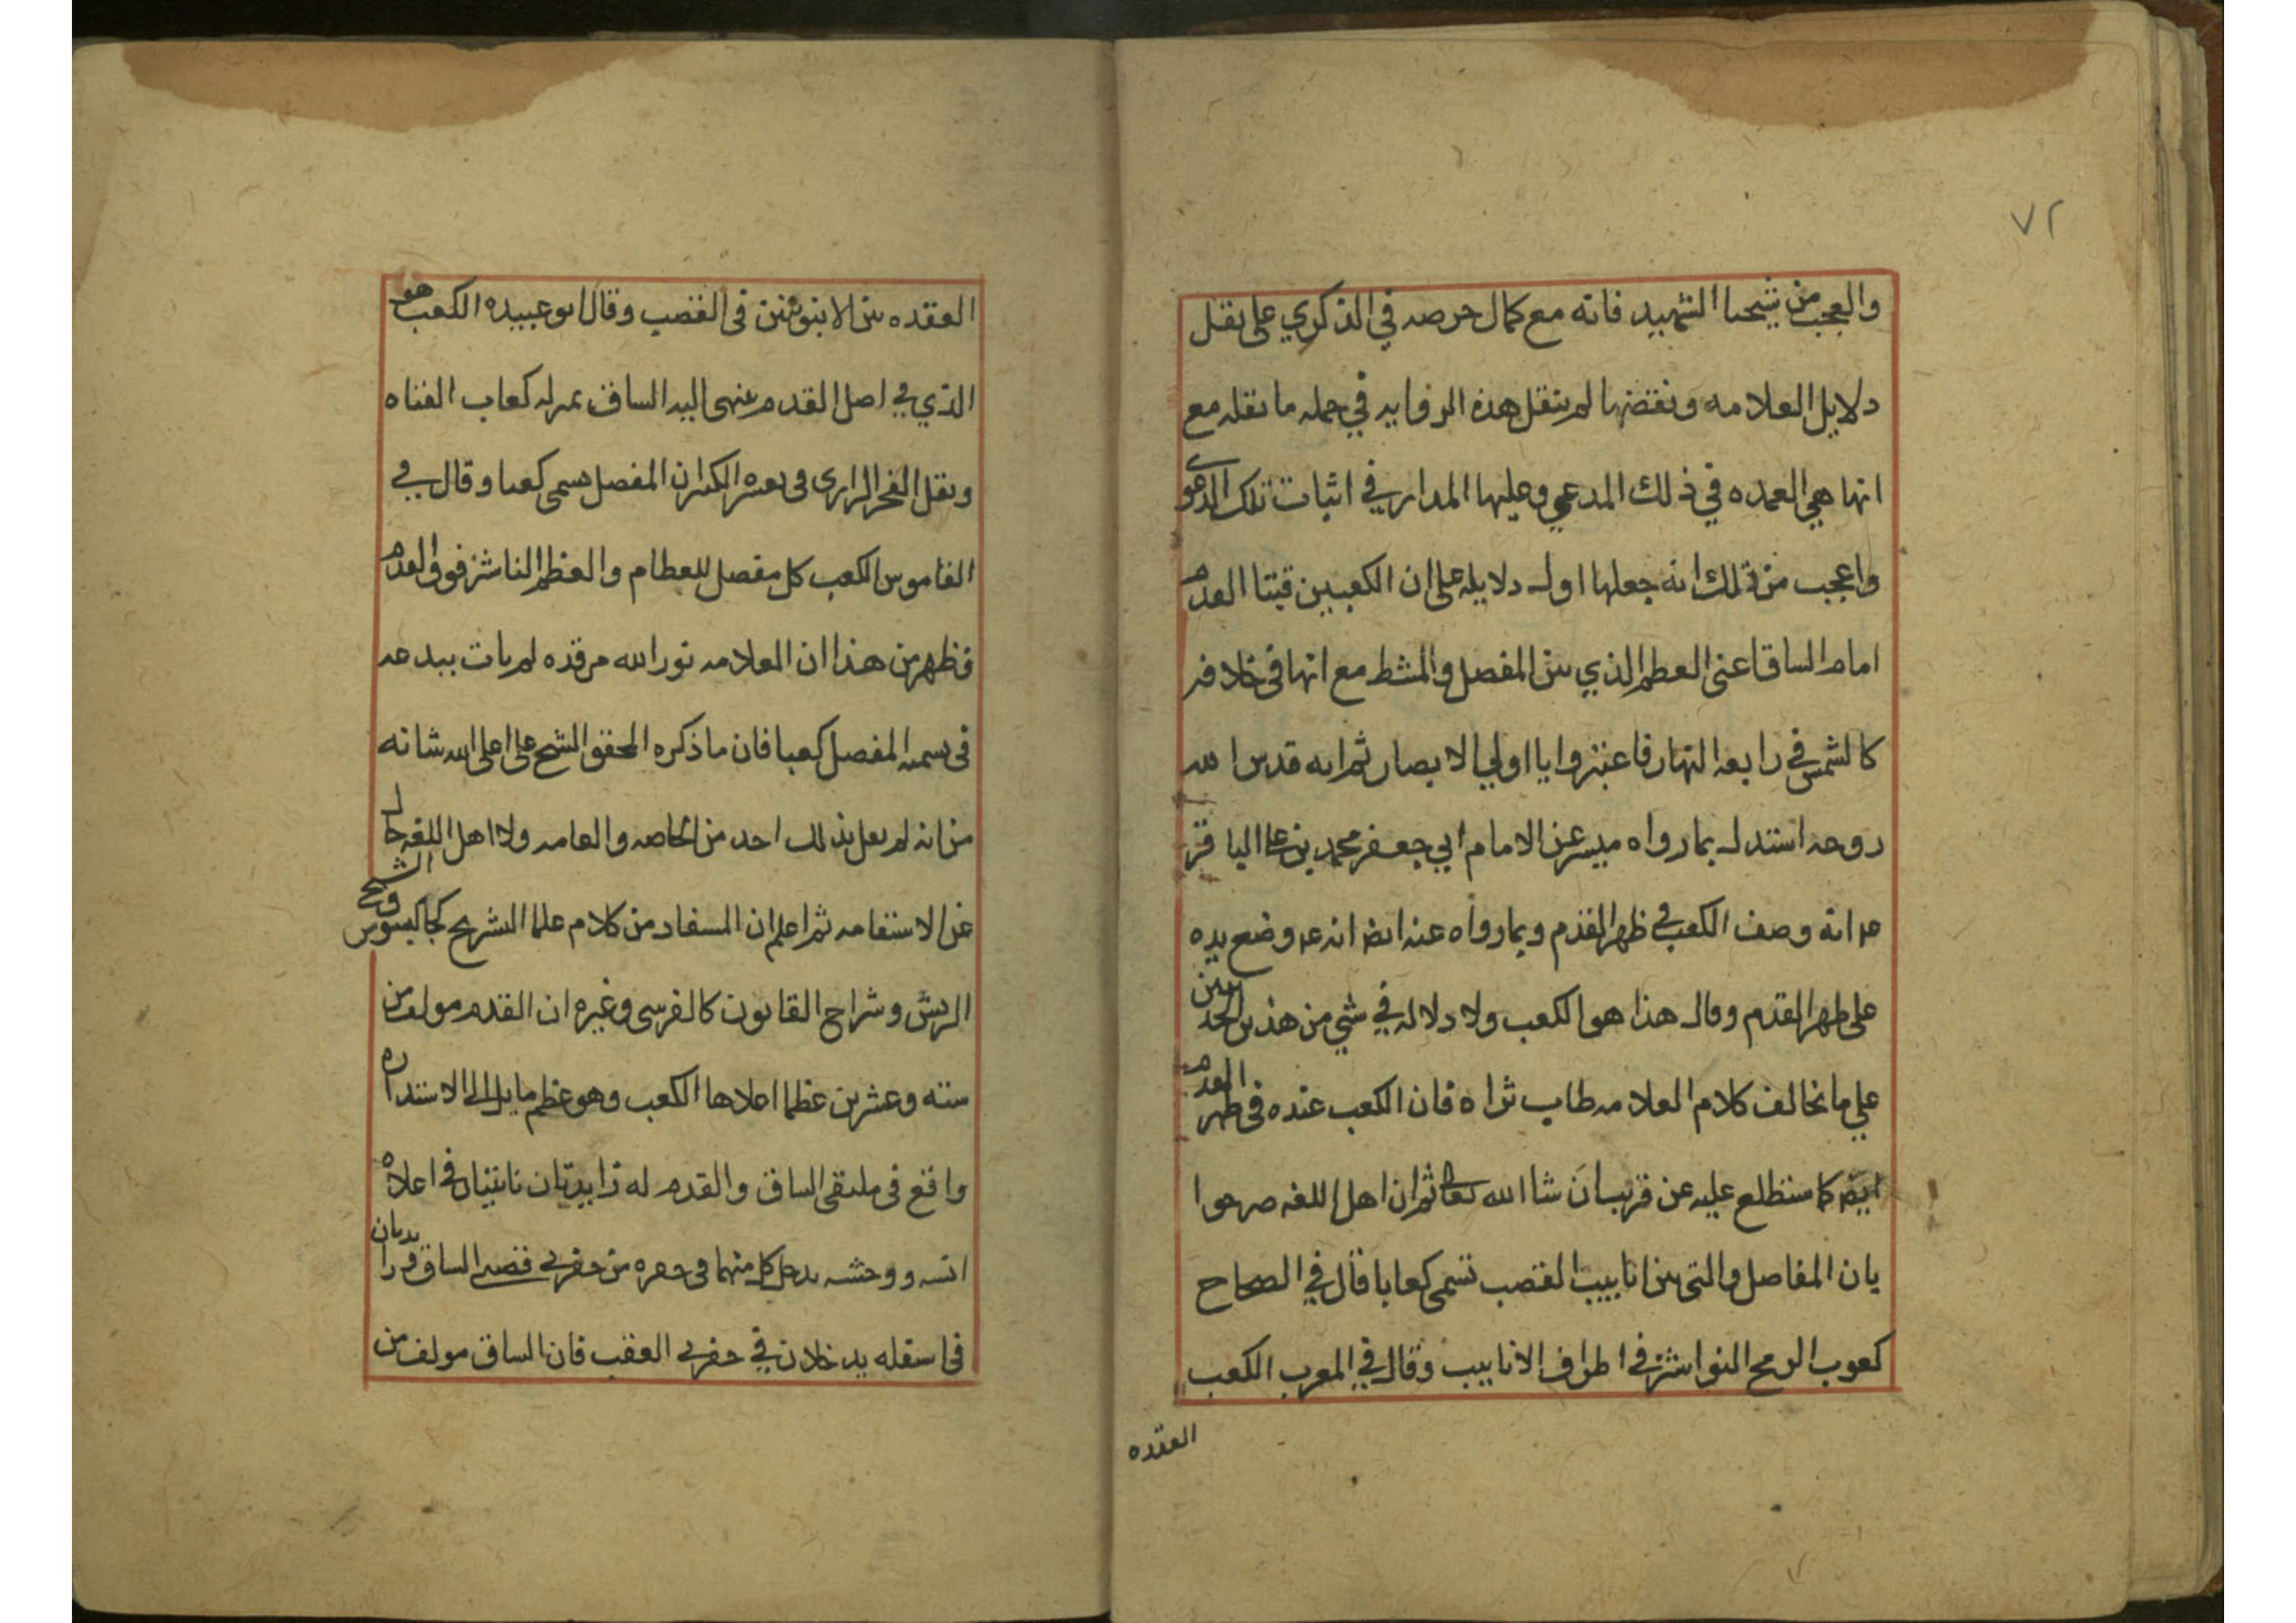 ٧٢
والعجب من شيخنا الشهيد فانه مع كمال حرصه في الذكري على نقل
دلايل العلامه ونقضها لم ينقل هذه الروايه في جمله ما نقله مع
انها هي العمده في ذلك المدعي وعليها المدار في اثبات تلك الدعوي
واعجب من ذلك انه جعلها اول دلايله على ان الكعبين قبتا القدم
امام الساق اعنى العظم الذي بين المفصل والمشط مع انها في خلافه
كالشمس في رابعه النهار فاعتبروا يا اولي الابصار ثم انه قدس الله
روحه استدل بما رواه ميسر عن الامام ابي جعفر محمد بن علي الباقر
ع انه وصف الكعب في ظهر القدم وبما رواه عنه ايضا انه ع وضع يده
على ظهر القدم وقال هذا هو الكعب ولا دلاله في شي من هذين الحديثين
علي ما يخالف كلام العلامه طاب ثراه فان الكعب عنده في ظهر القدم
ايضا كما ستطلع عليه عن قريب ان شا الله تعالى ثم ان اهل اللغه صرحوا
بان المفاصل والتى بين انابيب القصب تسمى كعابا قال في الصحاح
كعوب الرمح النواشز في اطراف الانابيب وقال في المغرب الكعب
العقده
العقده بين الانبوبتين في القصب وقال ابو عبيده الكعب هو
الذي في اصل القدم ينتهى اليه الساق بمنزله كعاب القناه
ونقل الفخر الرازى في تفسيره الكبير ان المفصل يسمى كعبا وقال في
القاموس الكعب كل مفصل للعظام والعظم الناشز فوق القدم
فظهر من هذا ان العلامه نور الله مرقده لم يات ببدعه
في تسميه المفصل كعبا فان ما ذكره المحقق الشيخ على اعلى الله شانه
من انه لم يقل بذلك احد من الخاصه والعامه ولا اهل اللغه خال
عن الاستقامه ثم اعلم ان المستفاد من كلام علما التشريح كجالينوس والشيخ
الرئيس وشراح القانون كالقرشى وغيره ان القدم مولف من
سته وعشرين عظما اعلاها الكعب وهو عظم مايل الى الاستداره
واقع في ملتقى الساق والقدم له زايدتان ناتيتان في اعلاه
انسيه ووحشيه يدخل كل منهما في حفره من حفرتي قصبه الساق وزايدتان
في اسفله يدخلان في حفرتي العقب فان الساق مولف من